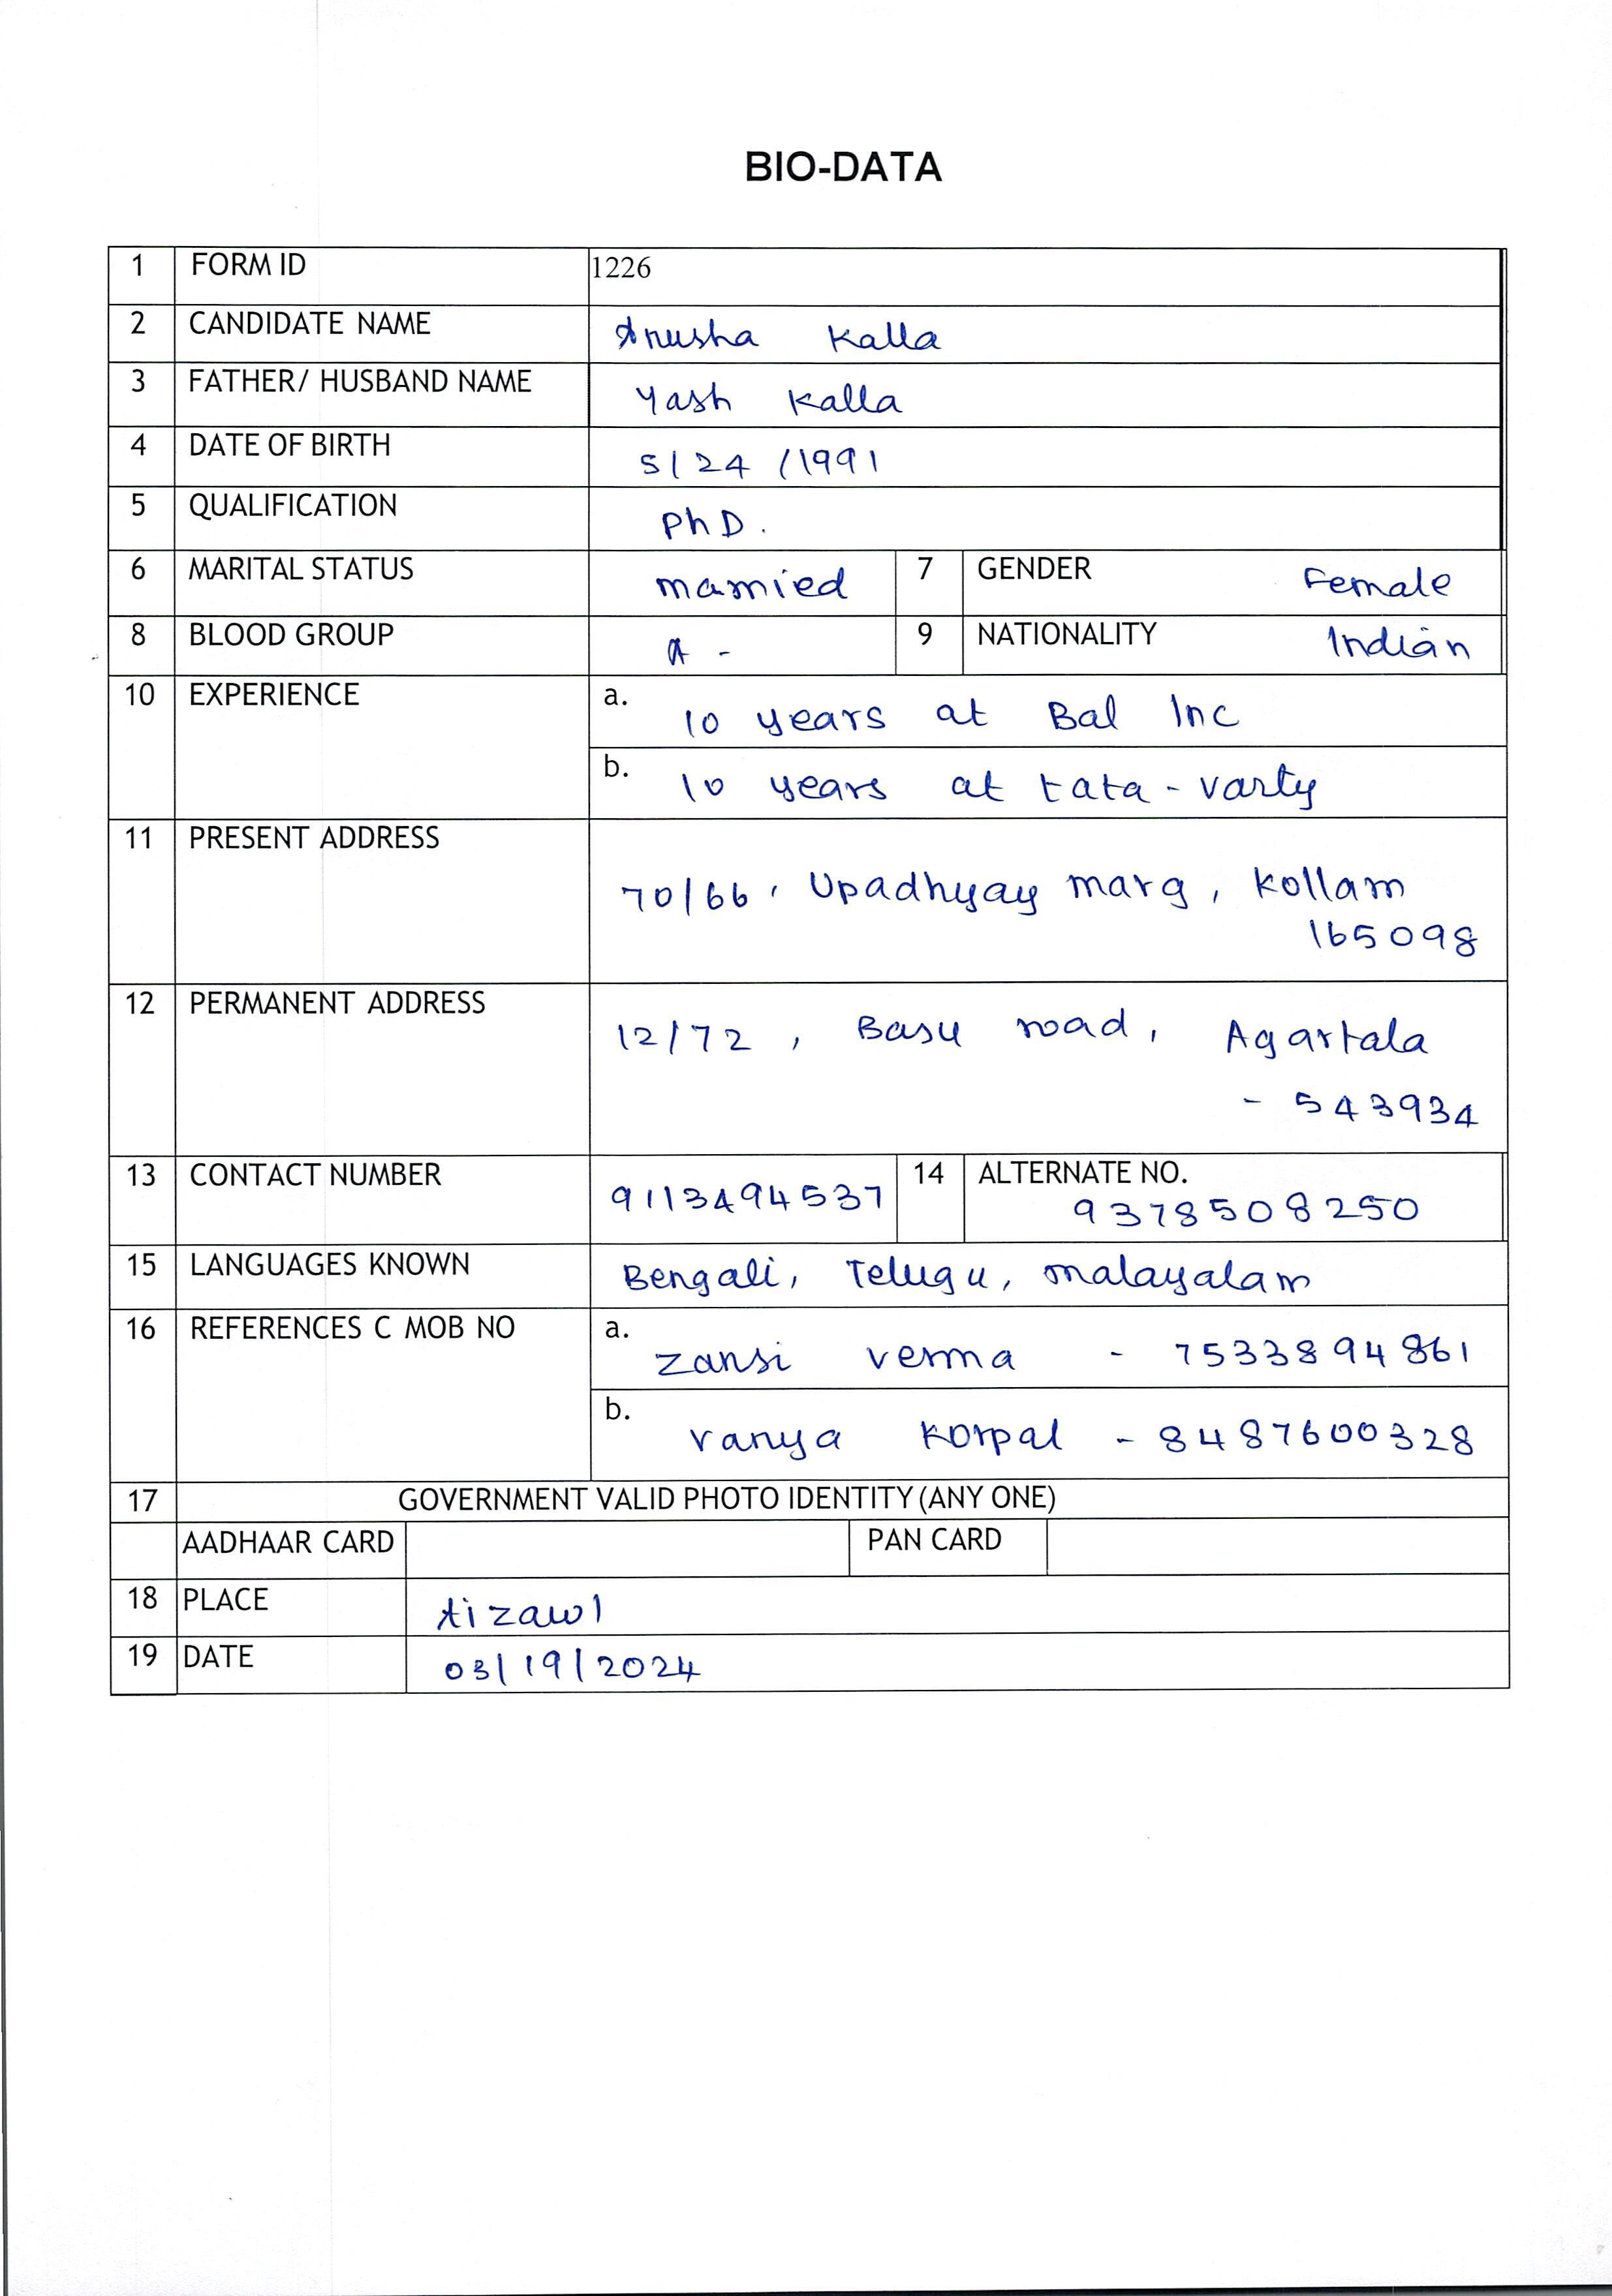 BIO-DATA
1 FORM ID 1226
2 CANDIDATE NAME Anusha Kalla
3 FATHER/ HUSBAND NAME Yash Kalla
4 DATE OF BIRTH 5/24/1991
5 QUALIFICATION PhD.
6 MARITAL STATUS married 7 GENDER Female
8 BLOOD GROUP A - 9 NATIONALITY Indian
10 EXPERIENCE a. 10 years at Bal Inc
b. 10 years at tata - varty
11 PRESENT ADDRESS
70/66, Upadhyay marg, Kollam
165098
12 PERMANENT ADDRESS
12/72, Basu road, Agartala
- 543934
13 CONTACT NUMBER 9113494537 14 ALTERNATE NO.
9378508250
15 LANGUAGES KNOWN Bengali, Telugu, malayalam
16 REFERENCES C MOB NO a. Zansi verma - 7533894861
b. vanya Korpal - 8487600328
17 GOVERNMENT VALID PHOTO IDENTITY (ANY ONE)
AADHAAR CARD PAN CARD
18 PLACE Aizawl
19 DATE 03/19/2024